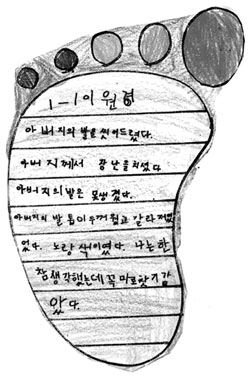 1-1 이원경
아버지의 발을 씻어드렸다.
아버지께서 장난을 치셨다
아버지의 발은 못생겼다.
아버지의 발톱이 두꺼웠고 갈라져있
었다. 노랑 색이였다. 나는 한
참 생각했는데 꼭 마로핫지 같
았다.